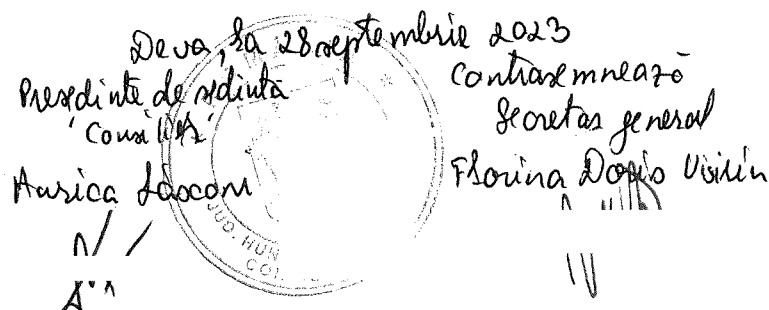 Deva, la 28 septembrie 2023
Presedinte de sedinta
Consilier
Aurica
Contrasemnează
Secretar general
Florina Doris Visirin
JUD. HUN